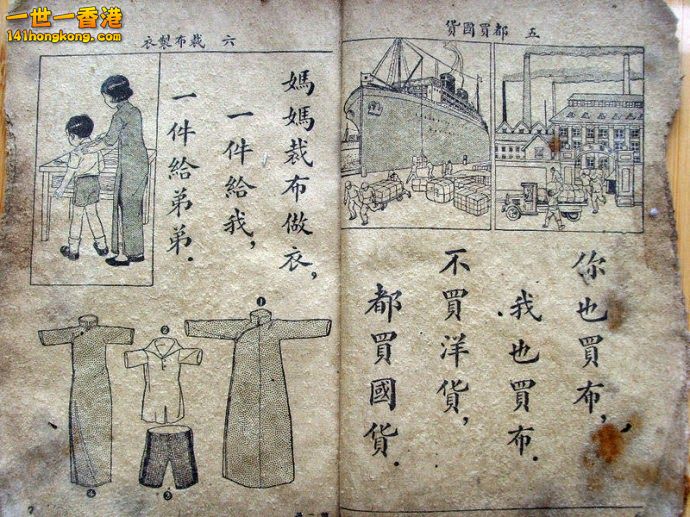 一世一香港
141hongkong.com
五 都買國貨
你也買布,
我也買布.
不買洋貨,
都買國貨.
六 裁布製衣
媽媽裁布做衣,
一件給我,
一件給弟弟.
①
②
③
④